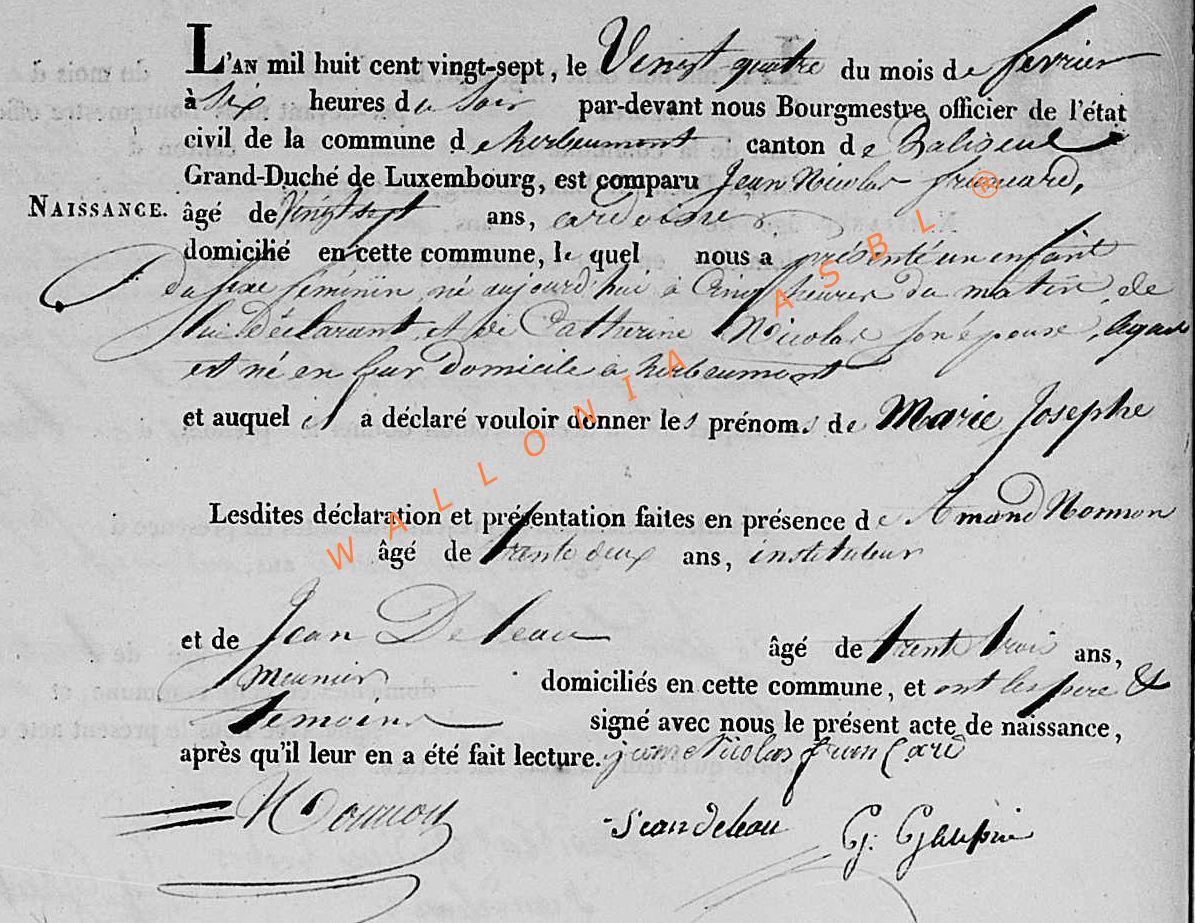 L'AN mil huit cent vingt-sept, le Vingt quatre du mois de fevrier
à Six heures du Soir par-devant nous Bourgmestre officier de l'état
civil de la commune d e herbeumont canton de Paliseul
Grand-Duché de Luxembourg, est comparu Jean Nicolas
NAISSANCE. âgé de Vingt sept ans, ardoisier
domicilié en cette commune, le quel nous a présenté un enfant
du sexe féminin né aujourd'hui à Cinq heures du matin, de
lui Déclarant et de Catherine Nicolas son épouse, lequel
est né en leur domicile à herbeumont
et auquel il a déclaré vouloir donner les prénoms de Marie Josephe
Lesdites déclaration et présentation faites en présence de Amand Nonnon
âgé de trente deux ans, instituteur
et de Jean Deleau âgé de trente trois ans,
meunier domiciliés en cette commune, et ont les pere &
temoins signé avec nous le présent acte de naissance,
après qu'il leur en a été fait lecture. jean Nicolas
Nonnon Jean deleau G.
WALLONIA ASBL ®